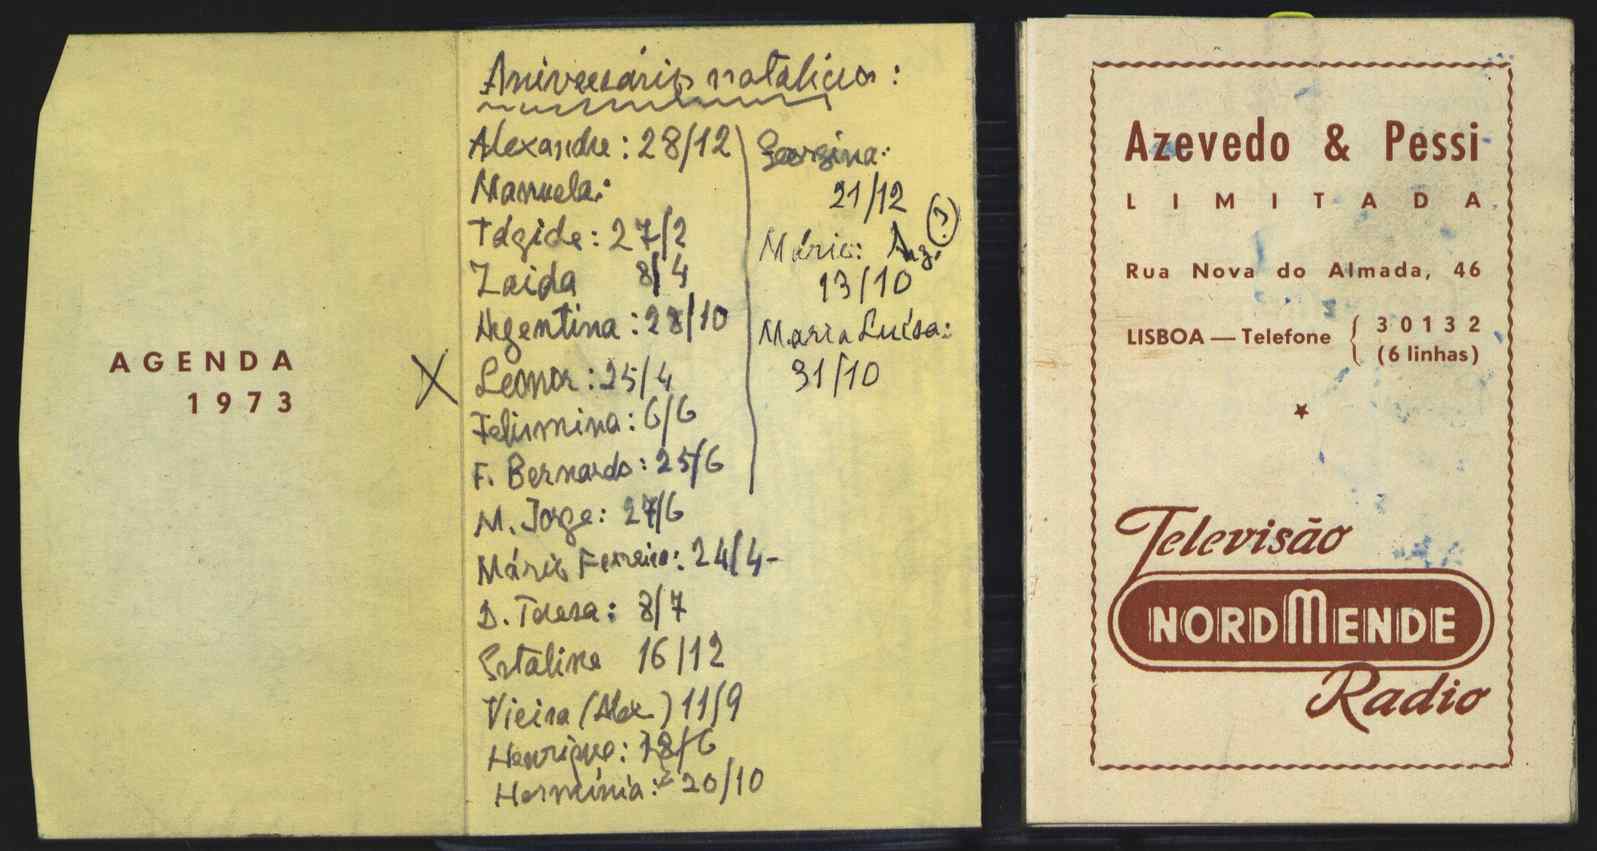 AGENDA
1973
Aniversários natalícios:
Alexandre: 28/12
Manuela:
Tágide: 27/2
Zaida 8/4
Argentina: 28/10
X Leonor: 25/4
Felismina: 6/6
F. Bernardo: 25/6
M. Jorge: 27/6
Mário Ferreira: 24/4-
D. Teresa: 8/7
Estaline 16/12
Vieira (Alex.) 11/9
Henrique: 18/6
Hermínia: 20/10
Georgina:
21/12
Mário: Ang.
13/10
Maria Luísa:
31/10
Azevedo & Pessi
LIMITADA
Rua Nova do Almada, 46
LISBOA — Telefone { 30132
(6 linhas)
Televisão
NORDMENDE
Radio